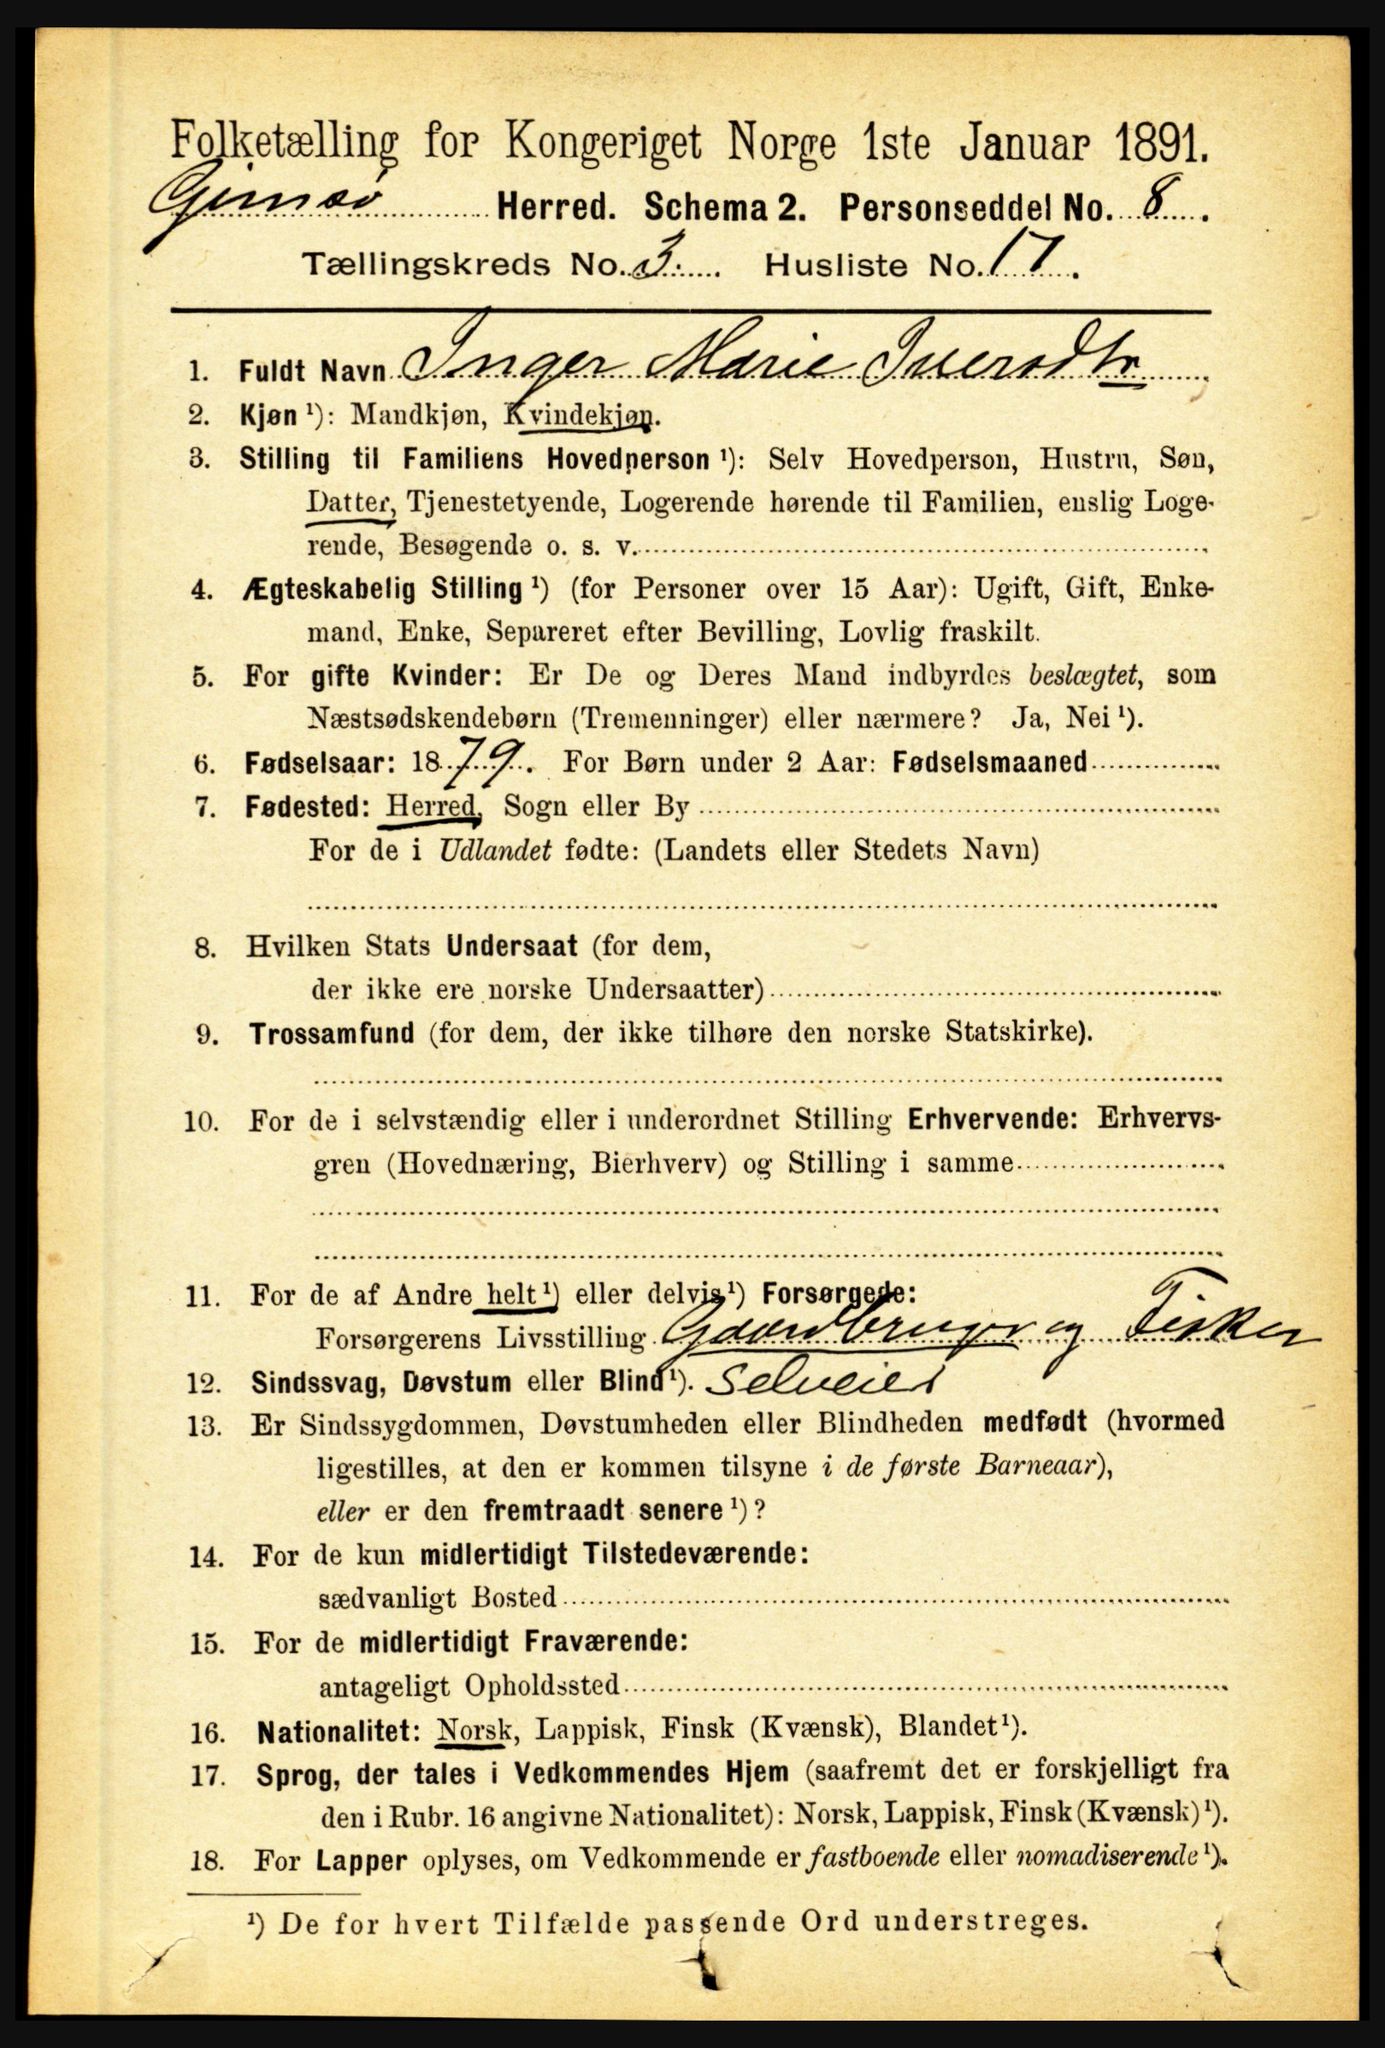 Folketælling for Kongeriget Norge 1ste Januar 1891.
Gimsø Herred. Schema 2. Personseddel No. 8.
Tællingskreds No. 3. Husliste No. 17.
1. Fuldt Navn Inger Marie Iversdtr
2. Kjøn ¹): Mandkjøn, Kvindekjøn.
3. Stilling til Familiens Hovedperson ¹): Selv Hovedperson, Hustru, Søn,
Datter, Tjenestetyende, Logerende hørende til Familien, enslig Loge-
rende, Besøgende o. s. v.
4. Ægteskabelig Stilling ¹) (for Personer over 15 Aar): Ugift, Gift, Enke-
mand, Enke, Separeret efter Bevilling, Lovlig fraskilt.
5. For gifte Kvinder: Er De og Deres Mand indbyrdes beslægtet, som
Næstsødskendebørn (Tremenninger) eller nærmere? Ja, Nei ¹).
6. Fødselsaar: 1879. For Børn under 2 Aar: Fødselsmaaned
7. Fødested: Herred, Sogn eller By
For de i Udlandet fødte: (Landets eller Stedets Navn)
8. Hvilken Stats Undersaat (for dem,
der ikke ere norske Undersaatter)
9. Trossamfund (for dem, der ikke tilhøre den norske Statskirke).
10. For de i selvstændig eller i underordnet Stilling Erhvervende: Erhvervs-
gren (Hovednæring, Bierhverv) og Stilling i samme
11. For de af Andre helt ¹) eller delvis ¹) Forsørgede:
Forsørgerens Livsstilling Gaardbruger og Fisker
12. Sindssvag, Døvstum eller Blind ¹). Selveier
13. Er Sindssygdommen, Døvstumheden eller Blindheden medfødt (hvormed
ligestilles, at den er kommen tilsyne i de første Barneaar),
eller er den fremtraadt senere ¹)?
14. For de kun midlertidigt Tilstedeværende:
sædvanligt Bosted
15. For de midlertidigt Fraværende:
antageligt Opholdssted
16. Nationalitet: Norsk, Lappisk, Finsk (Kvænsk), Blandet ¹).
17. Sprog, der tales i Vedkommendes Hjem (saafremt det er forskjelligt fra
den i Rubr. 16 angivne Nationalitet): Norsk, Lappisk, Finsk (Kvænsk) ¹).
18. For Lapper oplyses, om Vedkommende er fastboende eller nomadiserende ¹).
¹) De for hvert Tilfælde passende Ord understreges.